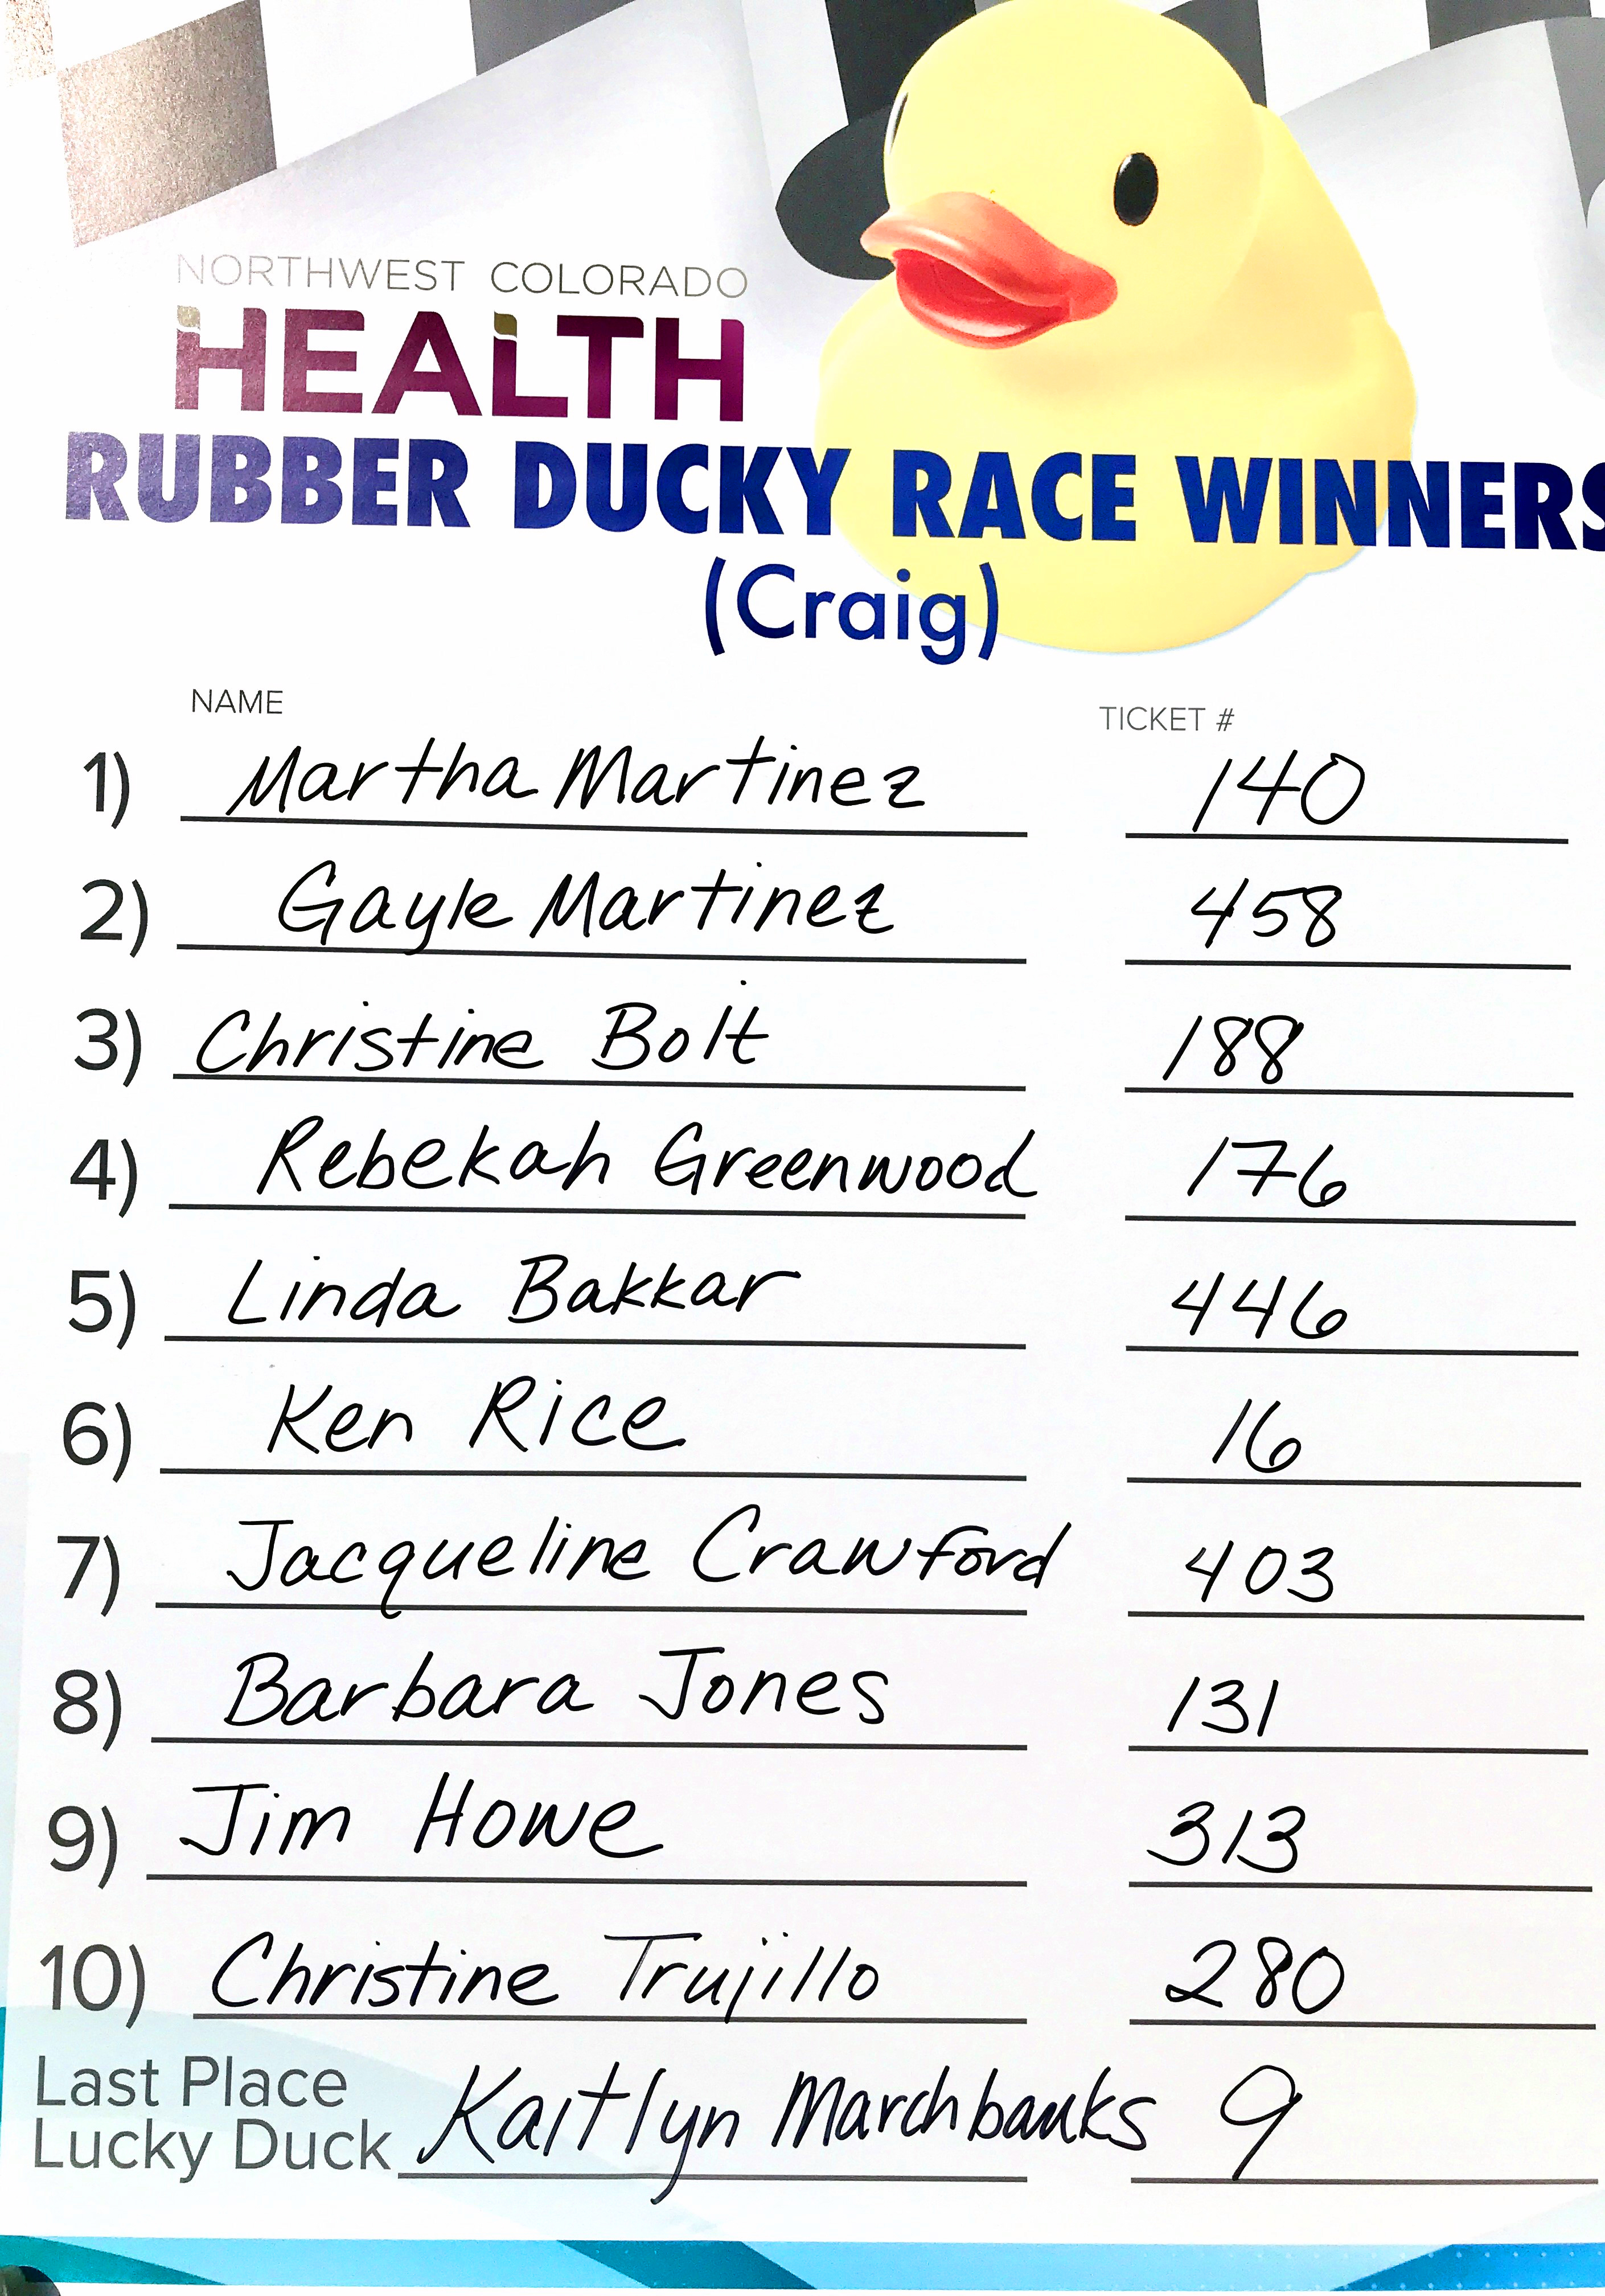 NORTHWEST COLORADO
HEALTH
RUBBER DUCKY RACE WINNERS
(Craig)
NAME TICKET #
1) Martha Martinez 140
2) Gayle Martinez 458
3) Christine Bolt 188
4) Rebekah Greenwood 176
5) Linda Bakkar 446
6) Ken Rice 16
7) Jacqueline Crawford 403
8) Barbara Jones 131
9) Jim Howe 313
10) Christine Trujillo 280
Last Place
Lucky Duck Kaitlyn Marchbanks 9